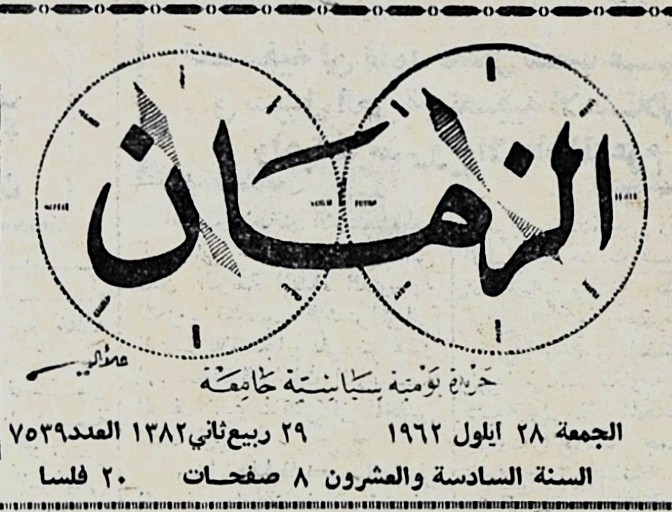 الزمان
جريدة يومية سياسية جامعة
الجمعة ٢٨ ايلول ١٩٦٢ ٢٩ ربيع ثاني ١٣٨٢ العدد ٧٥٣٩
السنة السادسة والعشرون ٨ صفحات ٢٠ فلسا